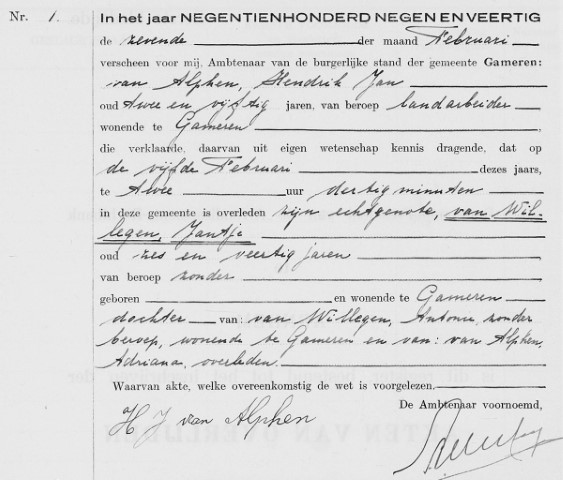 Nr. 1. In het jaar NEGENTIENHONDERD NEGEN EN VEERTIG
de zevende der maand Februari
verscheen voor mij, Ambtenaar van de burgerlijke stand der gemeente Gameren:
van Alphen, Hendrik Jan
oud twee en vijftig jaren, van beroep landarbeider
wonende te Gameren
die verklaarde, daarvan uit eigen wetenschap kennis dragende, dat op
de vijfde Februari dezes jaars,
te twee uur dertig minuten
in deze gemeente is overleden zijn echtgenote, van Wil-
legen, Jantje
oud zes en veertig jaren
van beroep zonder
geboren en wonende te Gameren
dochter van: van Willegen, Antonie, zonder
beroep, wonende te Gameren en van: van Alphen,
Adriana, overleden.
Waarvan akte, welke overeenkomstig de wet is voorgelezen.
De Ambtenaar voornoemd,
H J van Alphen